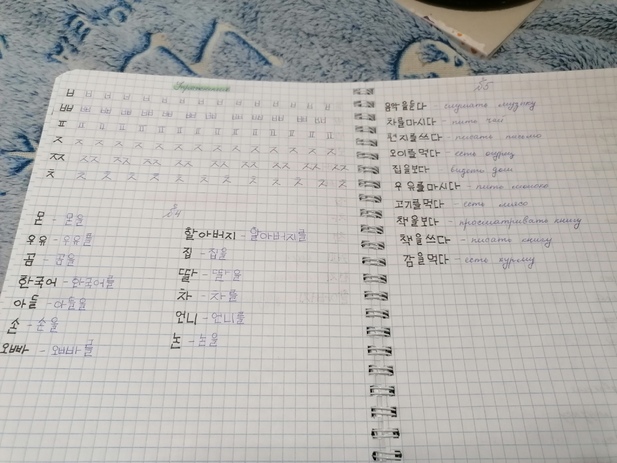 Упражнения
ㅂ ㅂ ㅂ ㅂ ㅂ ㅂ ㅂ ㅂ ㅂ ㅂ ㅂ ㅂ ㅂ ㅂ
ㅃ ㅃ ㅃ ㅃ ㅃ ㅃ ㅃ ㅃ ㅃ ㅃ ㅃ ㅃ ㅃ
ㅍ ㅍ ㅍ ㅍ ㅍ ㅍ ㅍ ㅍ ㅍ ㅍ ㅍ ㅍ ㅍ
ㅈ ㅈ ㅈ ㅈ ㅈ ㅈ ㅈ ㅈ ㅈ ㅈ ㅈ ㅈ
ㅉ ㅉ ㅉ ㅉ ㅉ ㅉ ㅉ ㅉ ㅉ ㅉ
ㅊ ㅊ ㅊ ㅊ ㅊ ㅊ ㅊ ㅊ ㅊ ㅊ ㅊ ㅊ
84
문 - 문을
우유 - 우유를
곰 - 곰을
한국어 - 한국어를
아들 - 아들을
손 - 손을
오빠 - 오빠를
할아버지 - 할아버지를
집 - 집을
딸 - 딸을
차 - 차를
언니 - 언니를
눈 - 눈을
85
음악을듣다 - слушать музыку
차를마시다 - пить чай
편지를쓰다 - писать письмо
오이를먹다 - есть огурец
집을보다 - видеть дом
우유를마시다 - пить молоко
고기를먹다 - есть мясо
책을보다 - просматривать книгу
책을쓰다 - писать книгу
감을먹다 - есть хурму